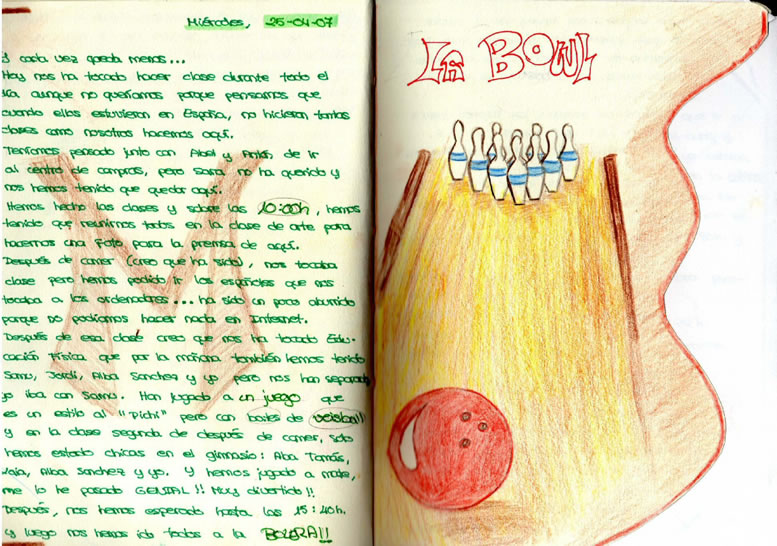 Miércoles, 25-04-07
y cada vez queda menos...
Hoy nos ha tocado hacer clase durante todo el
día aunque no queríamos porque pensamos que
cuando ellos estuvieron en España, no hicieron tantas
clases como nosotros hacemos aquí.
Teníamos pensado junto con Abel y de ir
al centro de compras, pero Sara no ha querido y
nos hemos tenido que quedar aquí.
Hemos hecho las clases y sobre las 10:00h, hemos
tenido que reunirnos todos en la clase de arte para
hacernos una foto para la prensa de aquí.
Después de comer (creo que ha sido), nos tocaba
clase pero hemos podido ir los españoles que nos
tocaba a los ordenadores... ha sido un poco aburrido
porque no podíamos hacer nada en Internet.
Después de esa clase creo que nos ha tocado Edu-
cación Física que por la mañana también hemos tenido
Samu, Jordi, Alba Sanchez y yo pero nos han separado
yo iba con Samu. Han jugado a un juego que
es un estilo al "Pichi" pero con bates de beisbol!!
y en la clase segunda de después de comer, solo
hemos estado chicas en el gimnasio: Alba Tomás,
Alba Sanchez y yo. Y hemos jugado a mate,
me lo he pasado GENIAL!! Muy divertido!!
Después, nos hemos esperado hasta las 15:40h.
y luego nos hemos ido todos a la BOLERA!!
LA BOWL